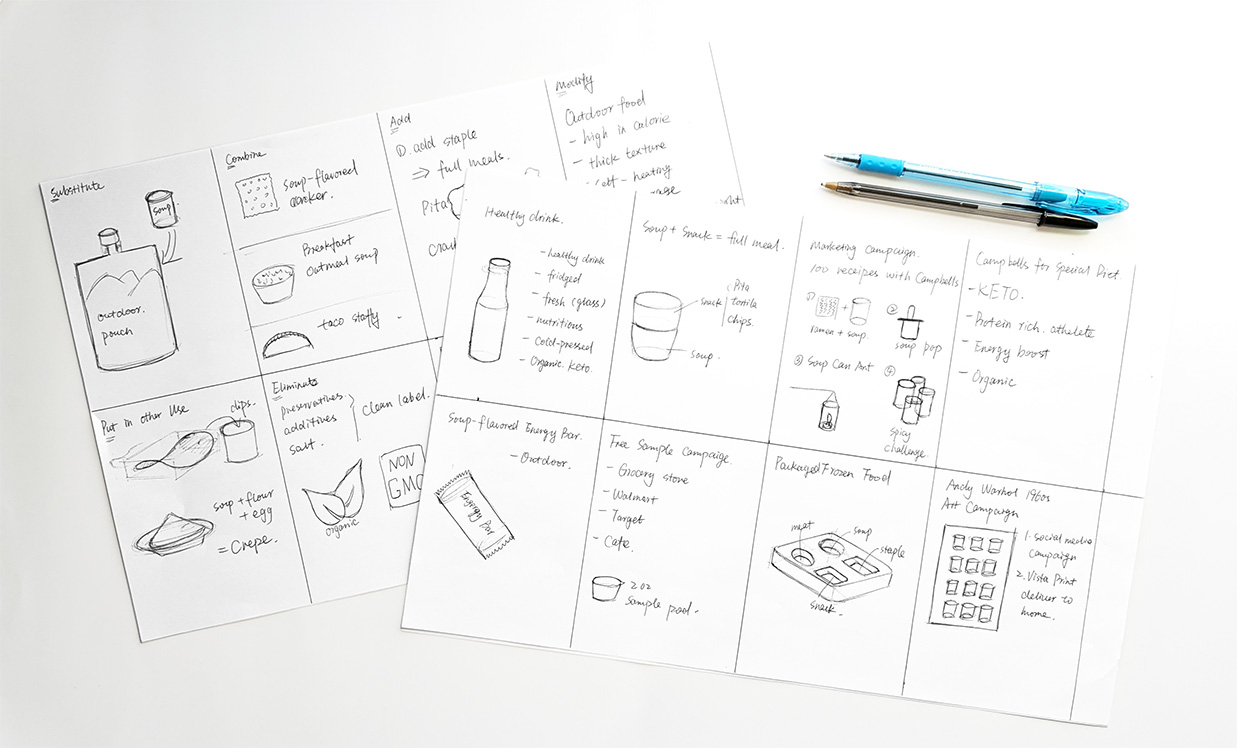 Substitute
soup
outdoor.
pouch
Combine
Soup-flavored
Breakfast
Oatmeal soup
taco
Add
① add staple
⇒ full meals.
Pita
Modify
Outdoor food
- high in calorie
- thick texture
heating
Put in other Use
clips.
soup + flour
+ egg
= Crepe.
Eliminate
preservatives.
additives
salt.
Clean label.
organic
NON
GMO
Healthy drink.
- healthy drink
- fridged
- fresh (glass)
- nutritions
- Cold-pressed
- Organic. keto.
Soup + Snack = full meal.
snack
Pita
tortila
chips.
soup.
Marketing campaign.
100 receipes with Campbells
①
+
ramen + soup.
②
soup pop
③ Soup Can Art
④
spicy
challenge.
Campbells for Special Diet.
- KETO.
- Protein rich. athelete
- Energy boost
- Organic
Soup-flavored Energy Bar.
- Outdoor.
Energy Bar
Free Sample Campaige.
- Grocery store
- Walmart
- Target
- Cafe.
2 oz
Sample pod.
Packaged Frozen Food
meat
soup
staple
snack.
Andy Warhol 1960s
Art Campaign
1. social media
campaign
2. Vista Print
deliver to
home.